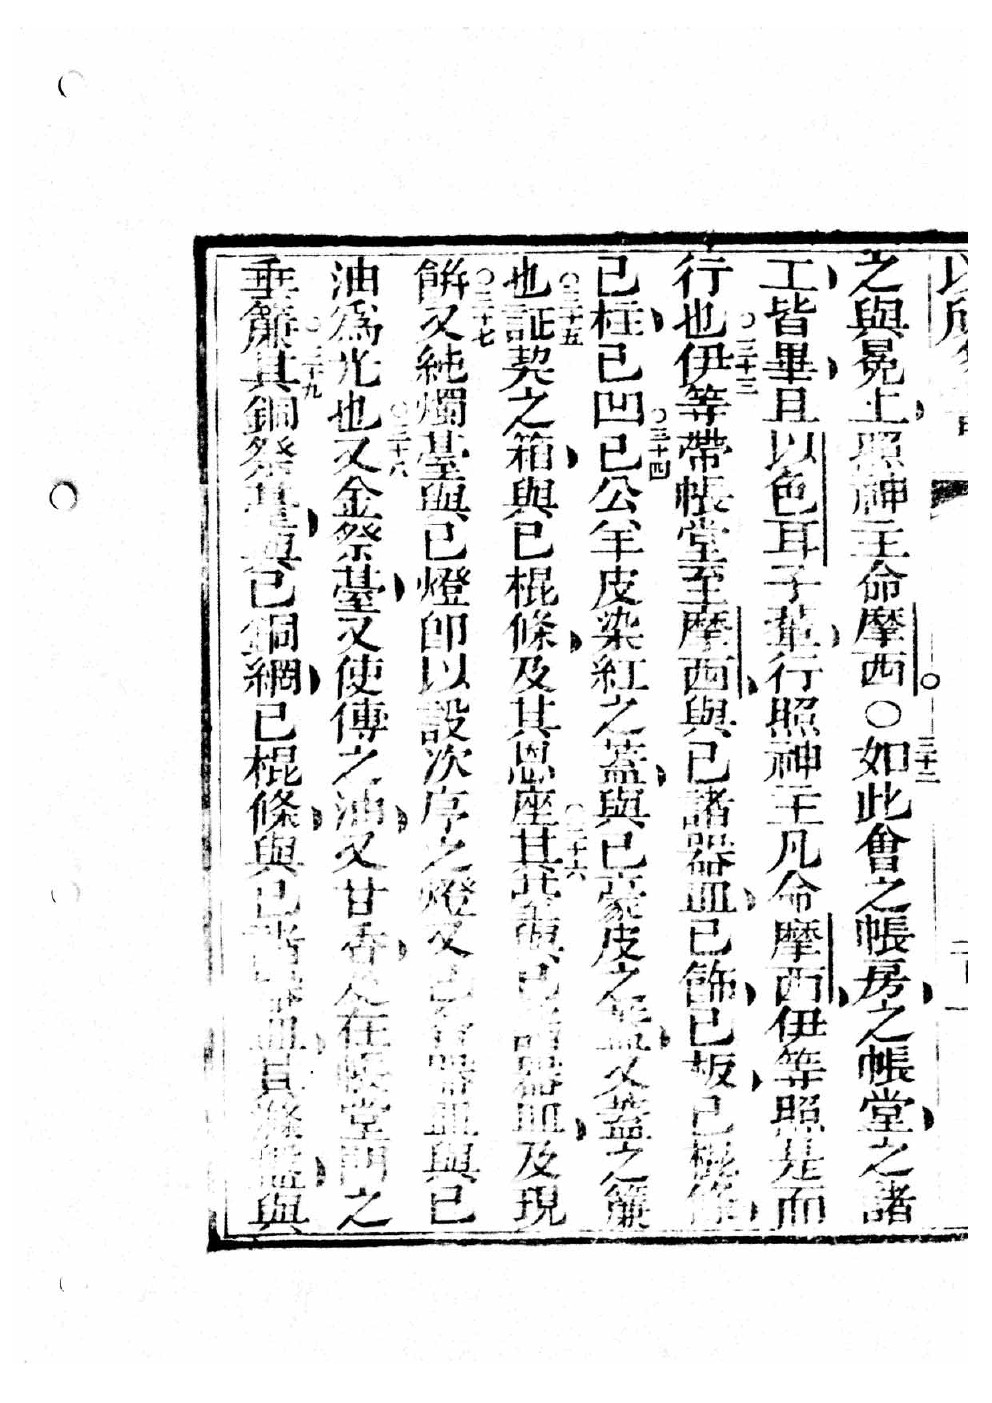 之與冕上照神主命摩西〇三十二如此會之帳房之帳堂之諸
工皆畢且以色耳子輩行照神主凡命摩西伊等照是而
行也〇三十三伊等帶帳堂至摩西與已諸器皿已飾已板已棍條
已柱已凹〇三十四已公羊皮染紅之蓋與已蒙皮之蓋又蓋之簾
也〇三十五証契之箱與已棍條及其恩座〇三十六其檯與已諸器皿及現
餅〇三十七又純燭臺與已燈即以設次序之燈又已各器皿與已
油為光也〇三十八又金祭臺又使傳之油又甘香及在帳堂門之
垂簾〇三十九其銅祭臺與已銅網已棍條與已諸器皿其滌盤與